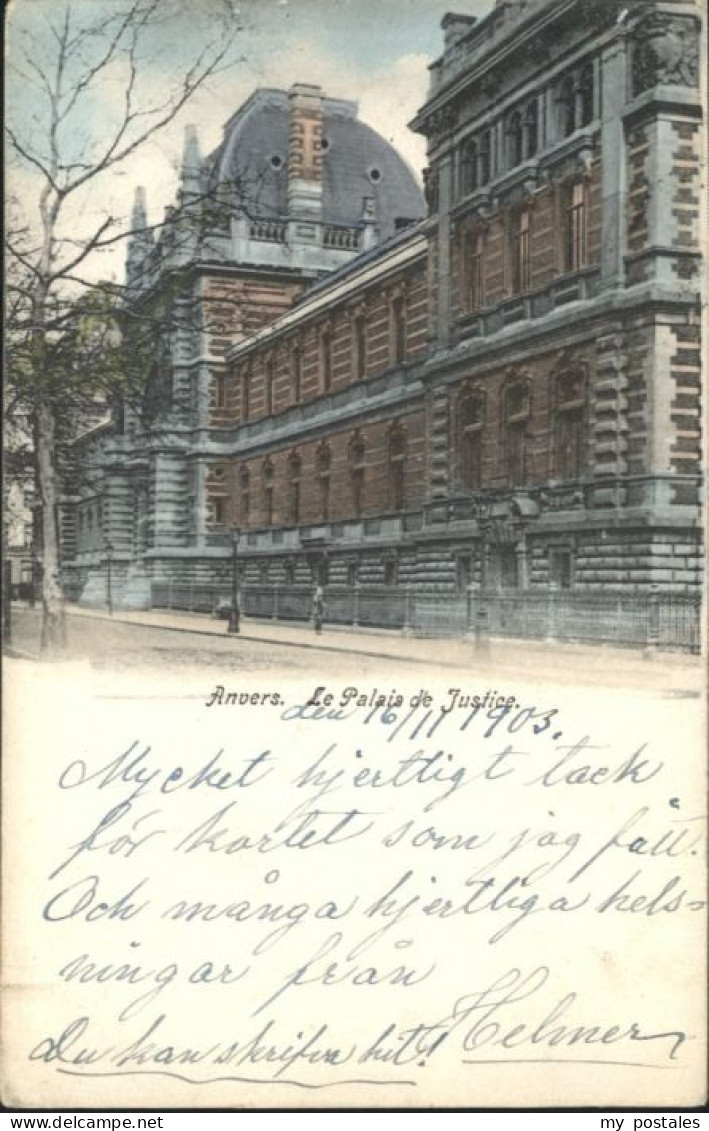 Anvers. Le Palais de Justice.
den 16/11 1903.
Mycket hjertligt tack
för kortet som jag fått.
Och många hjertliga hels=
ningar från
Helmer
Du kan skrifva hit!
my postales